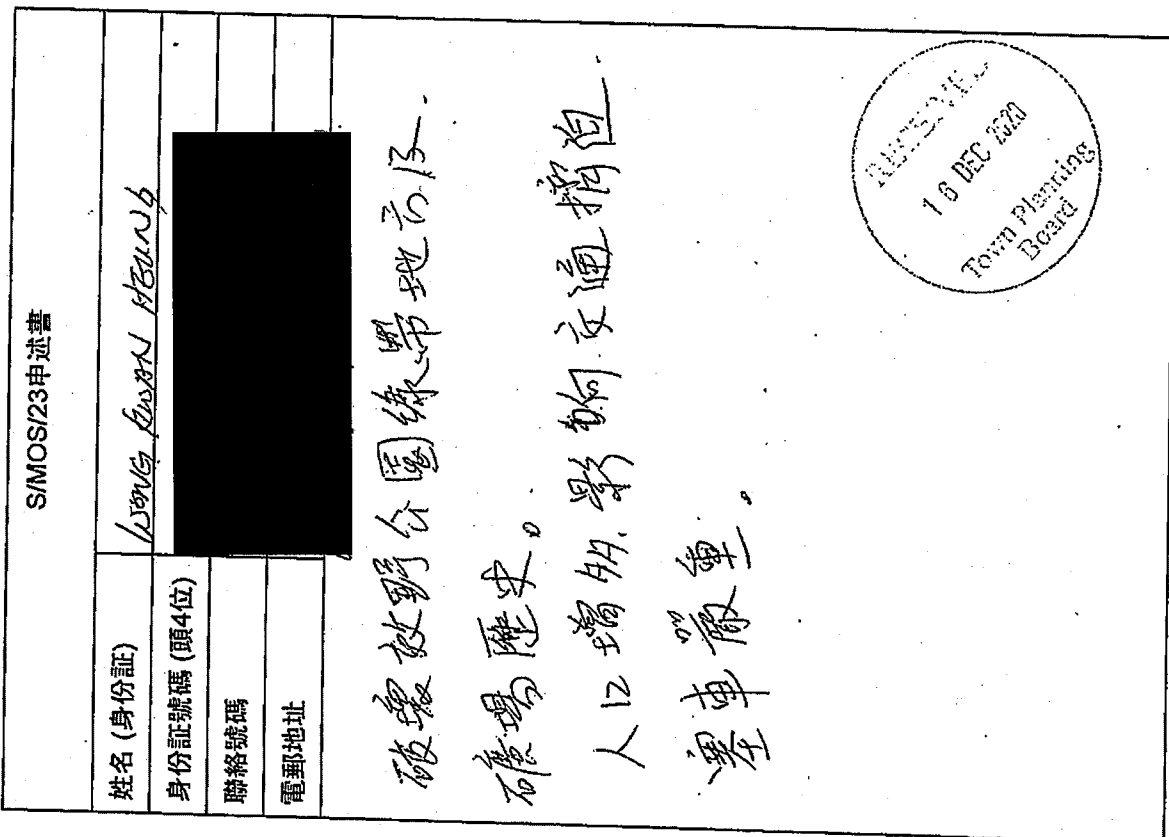 S/MOS/23申述書
姓名 (身份証) WONG KWAN HEUNG
身份証號碼 (頭4位)
聯絡號碼
電郵地址
破壞郊野公園綠帶地方及
礦場歷史。
人口增多,影响交通擠迫
塞車嚴重。
RECEIVED
16 DEC 2020
Town Planning
Board